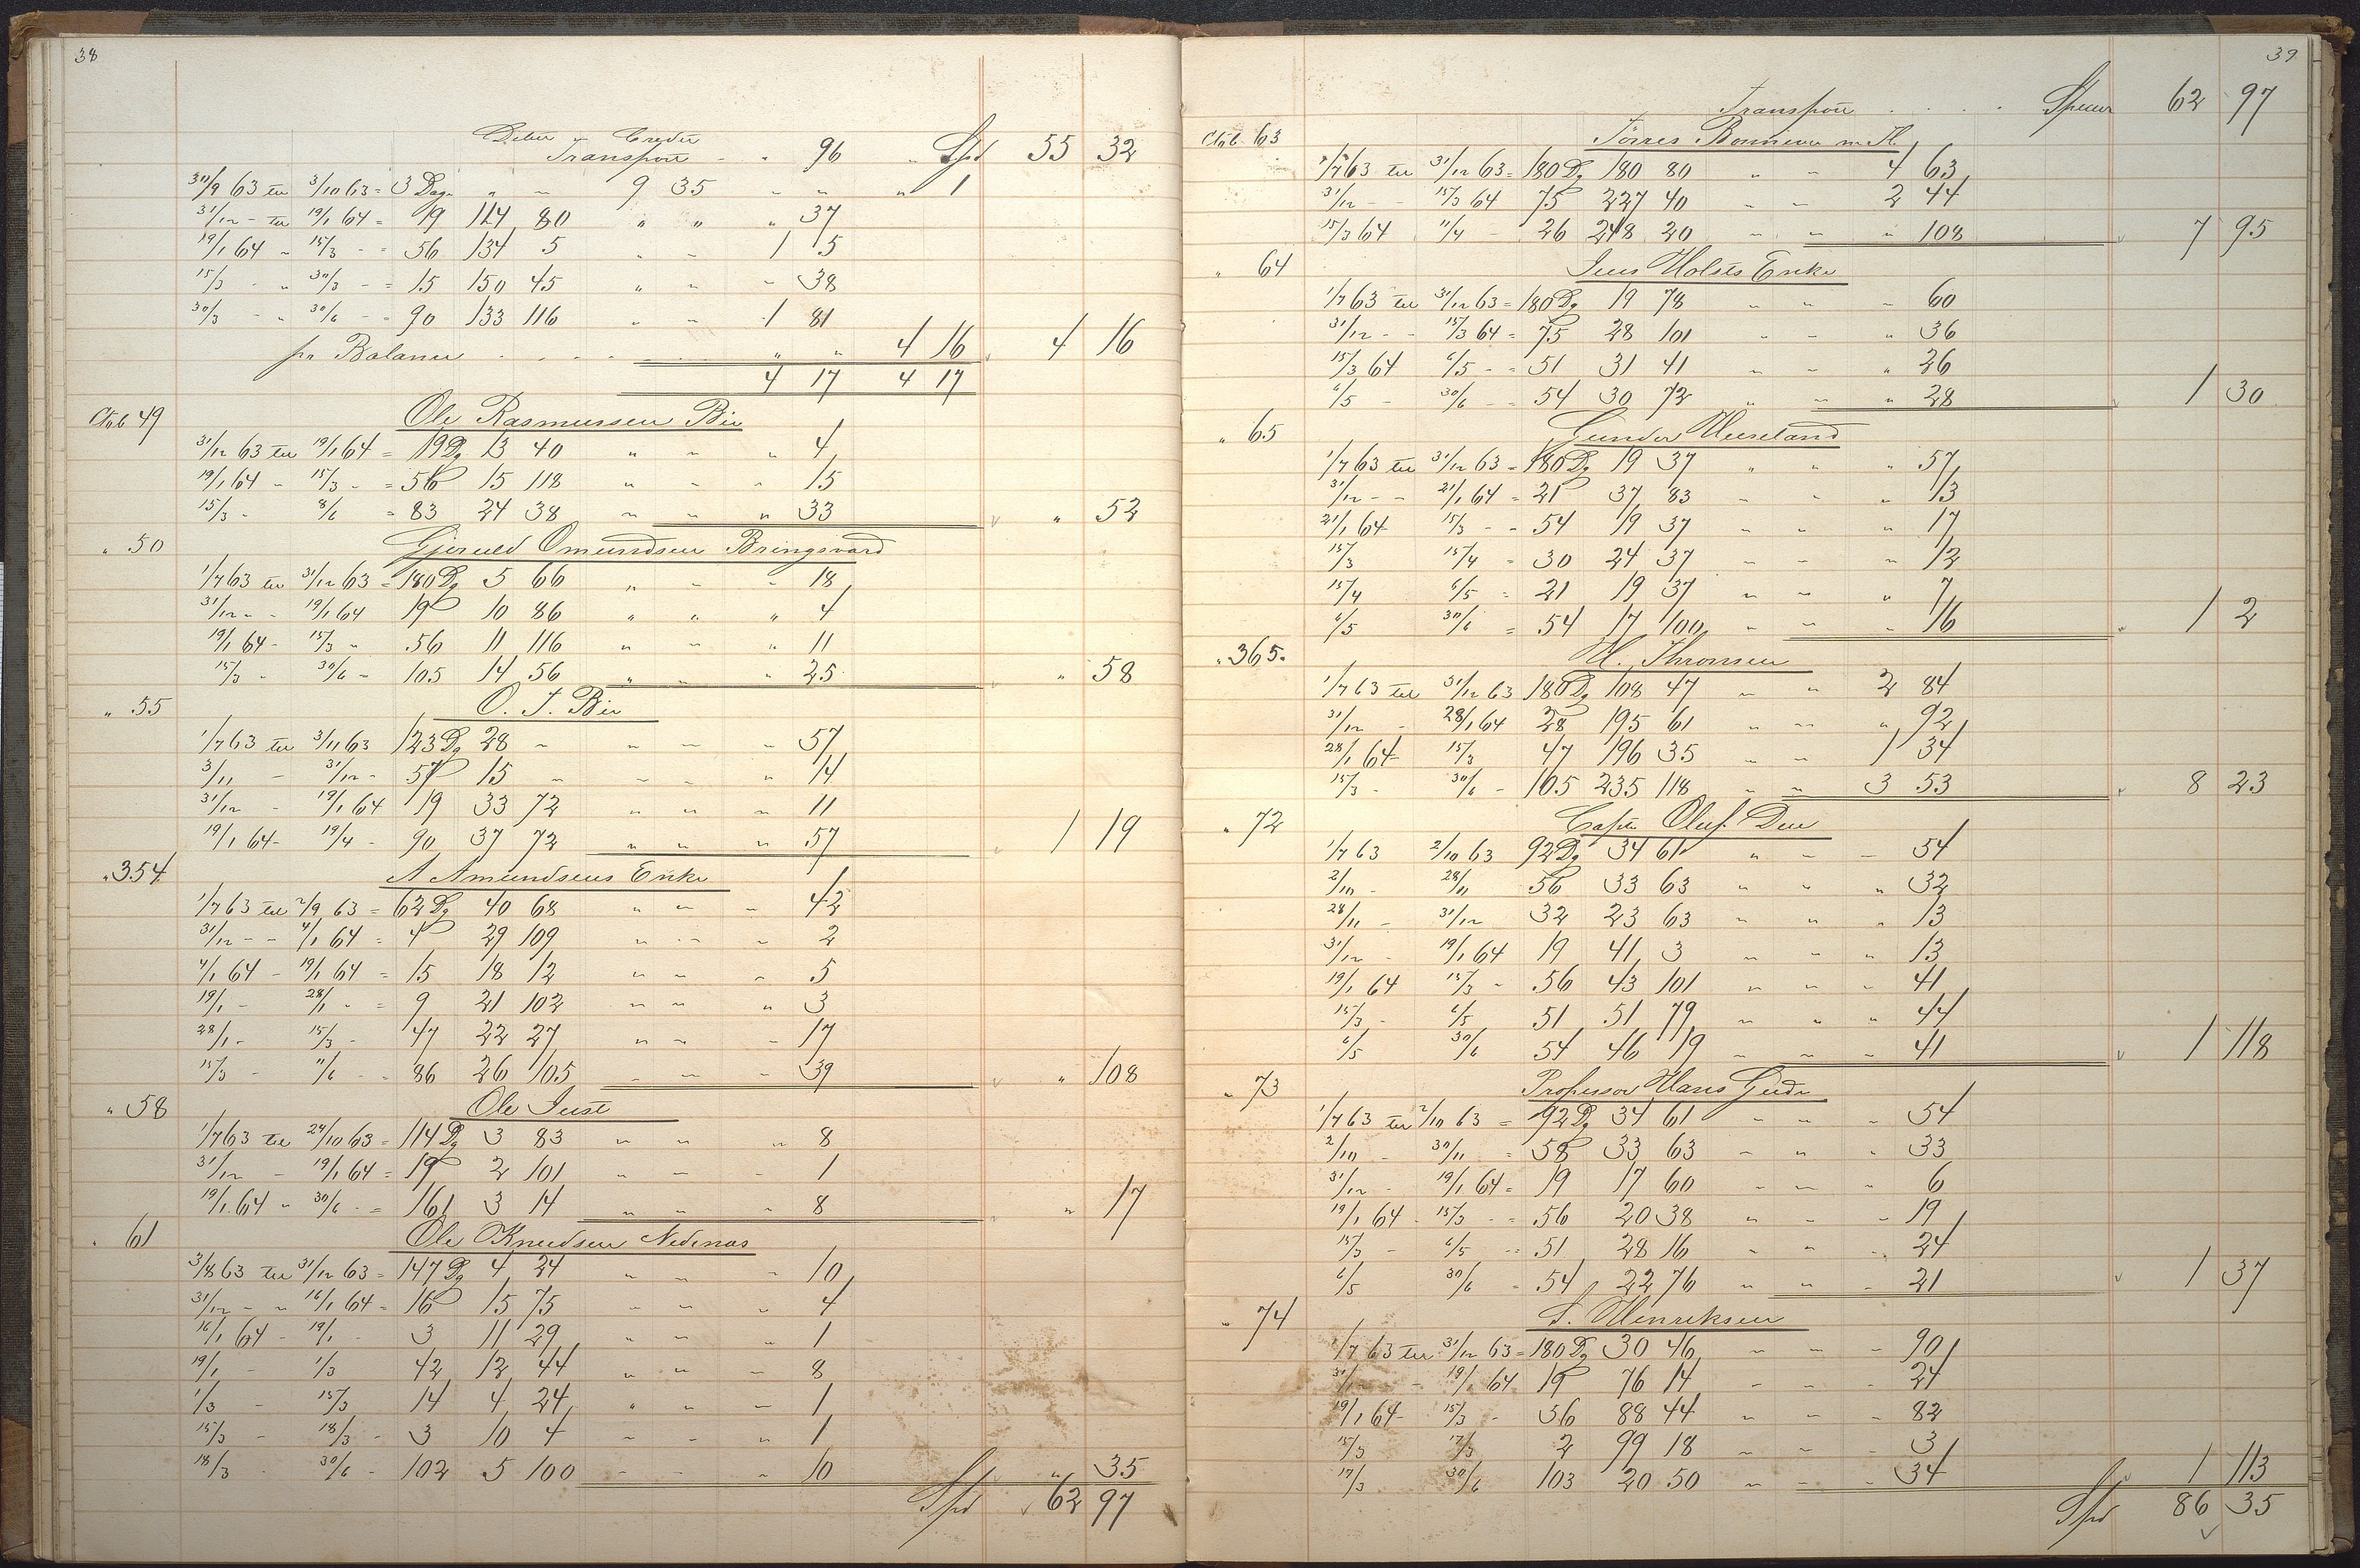 38
Debet Credit
Transport - - 96 - Spd 55 32
30/9 63 til 3/10 63 = 3 Dage " - 9 35 - - " 1
31/12 - til 19/1 64 = 19 114 80 " " " 37
19/1 64 - 15/3 - = 56 134 5 " - 1 5
15/3 - " 30/3 - = 15 150 45 " - - 38
30/3 - " 30/6 - = 90 133 116 " - 1 81
pr Balance . . . . " " 4 16 4 16
4 17 4 17
Ctob 49 Ole Rasmussen Bie
31/12 63 til 19/1 64 = 19 Dg 13 40 " - " 4
19/1 64 - 15/3 - = 56 15 118 " - - 15
15/3 - 8/6 = 83 24 38 - - " 33 " 52
" 50 Gjeruld Omundsen Bringsvard
1/7 63 til 31/12 63 = 180 Dg 5 66 " - - 18
31/12 - - 19/1 64 19 10 86 " " " 4
19/1 64 - 15/3 - 56 11 116 " - " 11
15/3 - 30/6 - 105 14 56 " - " 25 " 58
" 55 O. T. Bie
1/7 63 til 3/11 63 123 Dg 28 - - - - 57
3/11 - 31/12 - 57 15 - - - " 14
31/12 - 19/1 64 19 33 72 " " - 11
19/1 64 - 19/4 - 90 37 72 " " " 57 1 19
" 354 A Amundsens Enke
1/7 63 til 2/9 63 = 62 Dg 40 68 " - - 42
31/12 - - 4/1 64 = 4 29 109 - - - 2
4/1 64 - 19/1 64 = 15 18 12 " - - 5
19/1 - 28/1 - = 9 21 102 - - " 3
28/1 - 15/3 - 47 22 27 " - - 17
15/3 - 11/6 - - 86 26 105 - - - 39 " 108
" 58 Ole Just
1/7 63 til 24/10 63 = 114 Dg 3 83 - - - 8
31/12 - 19/1 64 = 19 2 101 - - - 1
19/1 64 - 30/6 - = 161 3 14 - - - 8 " 17
" 61 Ole Knudsen Nedenæs
3/8 63 til 31/12 63 = 147 Dg 4 24 - - - 10
31/12 - - 16/1 64 = 16 15 75 - - - 4
16/1 64 - 19/1 - 3 11 29 - - - 1
19/1 - 1/3 42 12 44 - - - 8
1/3 - 15/3 14 4 24 " - - 1
15/3 - 18/3 - 3 10 4 - - " 1
18/3 30/6 - 102 5 100 - - " 10 " 35
Spd 62 97
39
Transport . . . Species 62 97
Ctob 63 Törres Bonnevie m H.
1/7 63 til 31/12 63 = 180 Dg 180 80 " - 4 63
31/12 - - 15/3 64 75 227 40 - - 2 44
15/3 64 11/4 - 26 248 20 - - " 108 7 95
" 64 Jens Holsts Enke
1/7 63 til 31/12 63 = 180 Dg 19 78 - " - 60
31/12 - - 15/3 64 = 75 28 101 - - " 36
15/3 64 6/5 - = 51 31 41 - - " 26
6/5 - 30/6 - = 54 30 72 " - " 28 1 30
" 65 Gunder Hueseland
1/7 63 til 31/12 63 = 180 Dg 19 37 " " " 57
31/12 - - 21/1 64 = 21 37 83 - - " 13
21/1 64 15/3 - = 54 19 37 - - " 17
15/3 15/4 = 30 24 37 - - - 12
15/4 6/5 = 21 19 37 - - " 7
6/5 30/6 = 54 17 100 - - - 16 1 2
" 365. H. Thronsen
1/7 63 til 31/12 63 180 Dg 108 47 - " 2 84
31/12 - 28/1 64 28 195 61 " - " 92
28/1 64 - 15/3 47 196 35 - - 1 34
15/3 - 30/6 - 105 235 118 - " 3 53 8 23
" 72 Captn Oluf Due
1/7 63 2/10 63 92 Dg 34 61 " - - 54
2/10 - 28/11 56 33 63 " " " 32
28/11 - 31/12 32 23 63 - " " 13
31/12 - 19/1 64 19 41 3 - - " 13
19/1 64 15/3 - 56 43 101 " - - 41
15/3 - 6/5 51 51 79 - " " 44
6/5 30/6 54 46 19 - - - 41 1 118
" 73 Professor Hans Gude
1/7 63 til 2/10 63 = 92 Dg 34 61 - - - 54
2/10 - 30/11 = 58 33 63 - " " 33
31/12 - 19/1 64 = 19 17 60 - - " 6
19/1 64 - 15/3 - = 56 20 38 " - - 19
15/3 - 6/5 - = 51 28 16 " - - 24
6/5 30/6 = 54 22 76 - " - 21 1 37
" 74 S. Henriksen
1/7 63 til 31/12 63 = 180 Dg 30 46 - - - 90
31/12 - 19/1 64 = 19 76 14 - - - 24
19/1 64 - 15/3 - 56 88 44 - " - 82
15/3 17/3 2 99 18 - - - 3
17/3 30/6 103 20 50 - - - 34 1 113
Spd 86 35